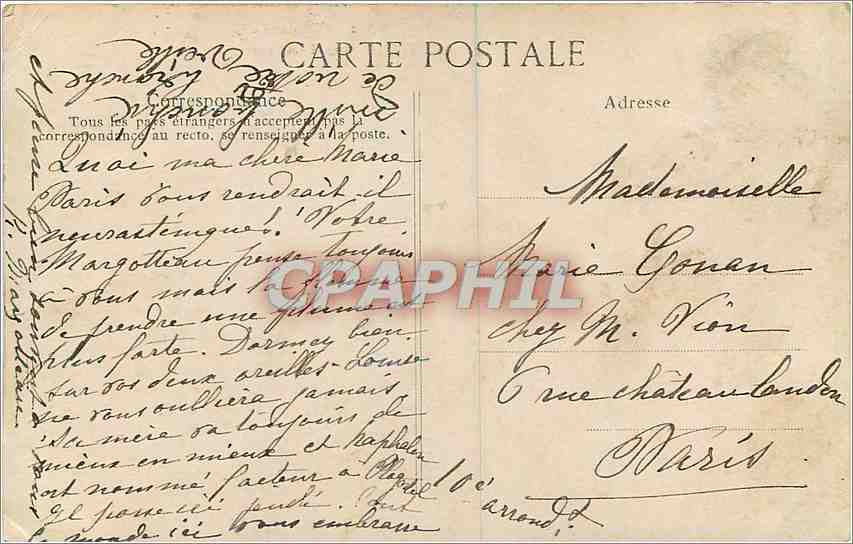 CARTE POSTALE
Correspondance
Tous les pays étrangers n'acceptent pas la
correspondance au recto, se renseigner à la poste.
Adresse
Quoi ma chere Marie
Paris vous rendrait-il
neurasténique! Votre
Margotteau pense toujours
à vous mais la flemme
de prendre une plume est
plus forte. Dormez bien
sur vos deux oreilles - Louise
ne vous oulliera jamais
Sa mère va toujours de
mieux en mieux et
est nommé facteur à
passe ici jeudi. Tout
le monde ici vous embrasse
et pense bien vous
Margotteau
de notre
Mademoiselle
Marie Conan
chez M. Viôn
6 rue château landon
Paris
10e
arrondt
CPAPHIL